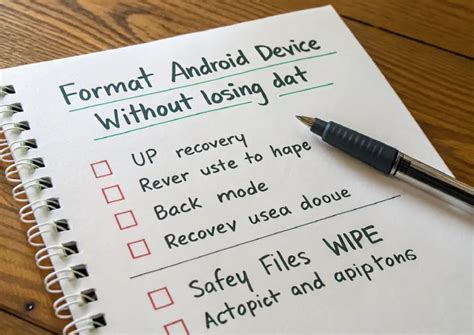 Format Android Device
Without losing dat
UP recovery
Rever uste to hape
Back mode
Recovey usea dooue
Safey Files WIPE
Actopict and apiptons